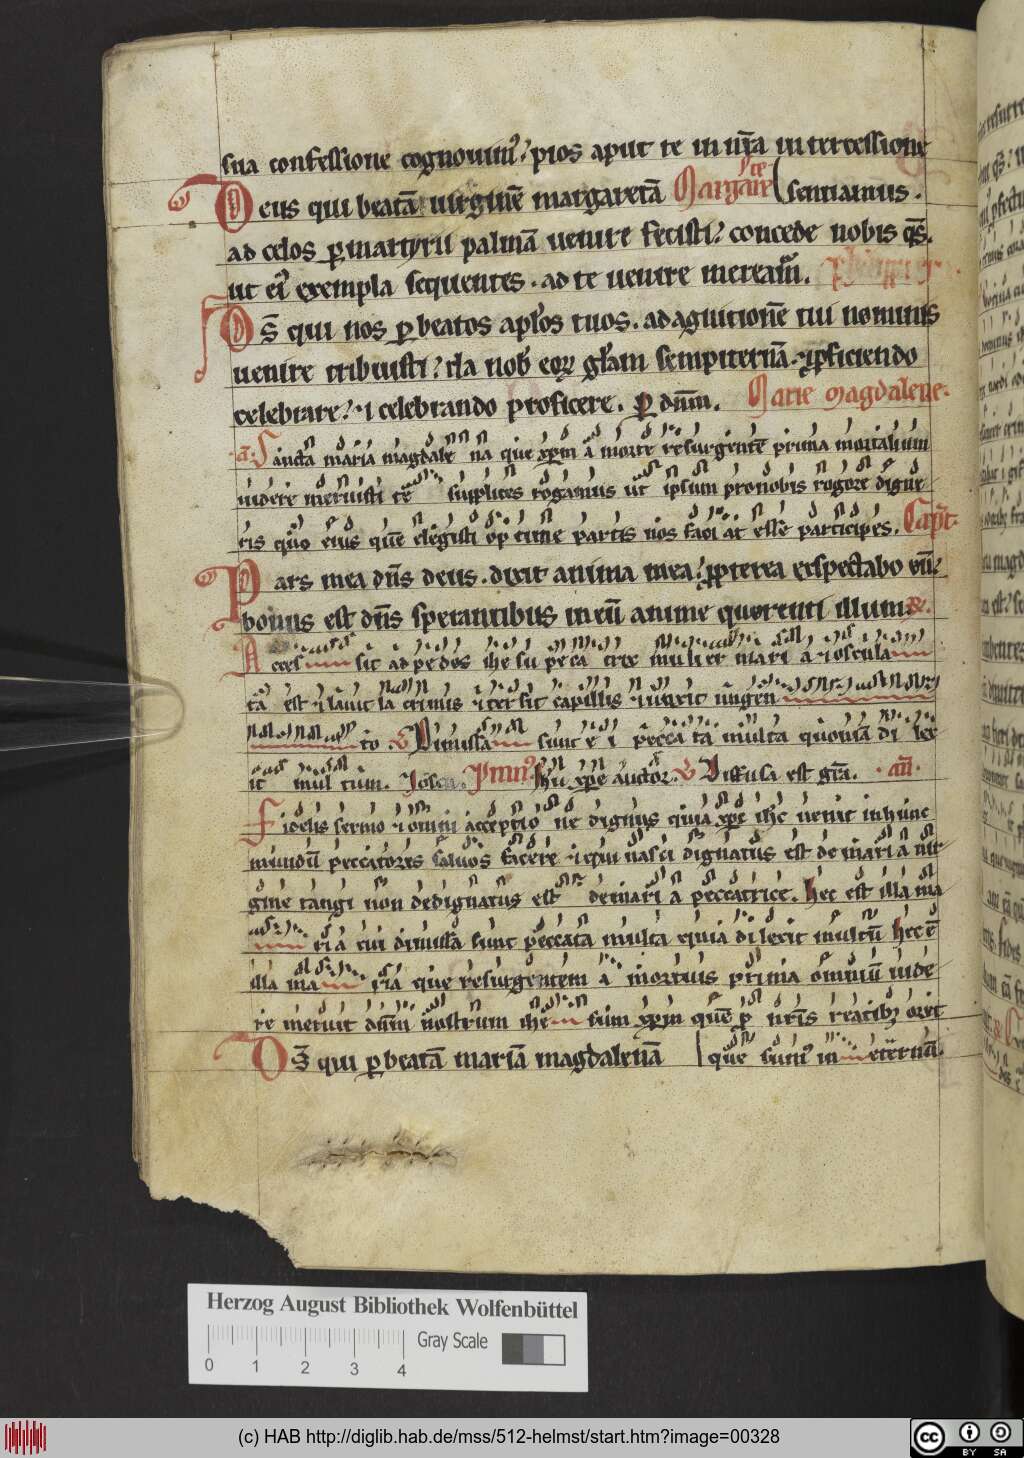 sua confessione cognouim᷒ pios aput te in nr̄a intercessione
Deus qui beatā uirginē margaretā Margarete sentiamus.
ad celos p̲ martyrii palmā uenire fecisti? concede nobis q̄s.
ut ei᷒ exempla sequentes. ad te uenire meream̄.
Ds̄ qui nos p̲ beatos ap̄los tuos. ad agnitionē tui nominis
uenire tribuisti? da nob̄ eoꝝ gl̄am sempiternā. ⁊ p̲ficiendo
celebrare? ⁊ celebrando proficere. p̲ dn̄m. Marie Magdalene.
a᷒. Sancta maria magdalena que xp̄m a morte resurgentē prima mortalium
uidere meruisti te supplices rogamus ut ipsum pro nobis rogare digne
ris quo eius quē elegisti optime partis nos faciat esse participes. Capit̄.
Pars mea dn̄s deus. dixit anima mea? p̲pterea exspectabo eū?
bonus est dn̄s sperantibus in eū anime querenti illum. R̄.
Accessit ad pedes ihesu peccatrix mulier maria ⁊ oscula
ta est ⁊ lauit lacrimis ⁊ tersit capillis ⁊ unxit ungen
to V̄ Dimissa sunt ei peccata multa quoniā dilex
it multum. Ihū xp̄e auctor. V̄ Diffusa est gr̄a. an̄.
Fidelis sermo ⁊ omni acceptione dignus quia xp̄c ihc̄ uenit in hunc
mundū peccatores saluos facere ⁊ qui nasci dignatus est de maria uir
gine tangi non dedignatus est de maria peccatrice. hec est illa ma
ria cui dimissa sunt peccata multa quia dilexit multū hec ē
illa maria que resurgentem a mortuis prima omniū uide
re meruit dn̄m nostrum ihesum xp̄m quē p̲ nr̄is reatibꝫ oret
Ds̄ qui p̲ beatā mariā magdalenā que sum᷒ in eternū.
Herzog August Bibliothek Wolfenbüttel
Gray Scale
0 1 2 3 4
(c) HAB http://diglib.hab.de/mss/512-helmst/start.htm?image=00328
cc BY SA